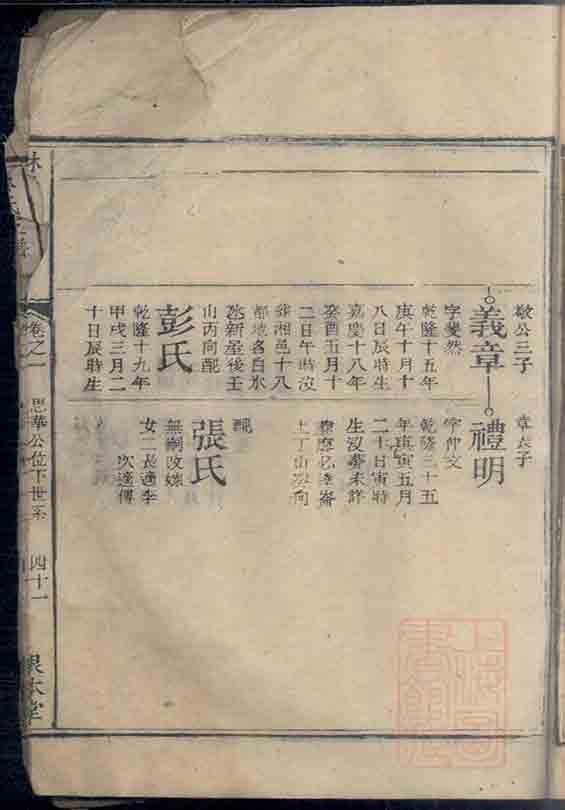 敏公三子
義章
字斐然
乾隆十五年
庚午十月十
八日辰時生
嘉慶十八年
癸酉五月十
二日午時沒
葬湘邑十八
都地名白水
氹新屋後壬
山丙向配
彭氏
乾隆十九年
甲戌三月二
十日辰時生
章長子
禮明
字仲文
乾隆三十五
年庚寅五月
二十日寅時
生沒葬未詳
上丁山癸向
配
張氏
無嗣改嫁
女二長適李
次適傅
卷之一
思華公位下世系
四十一
根本堂
上海圖書館藏